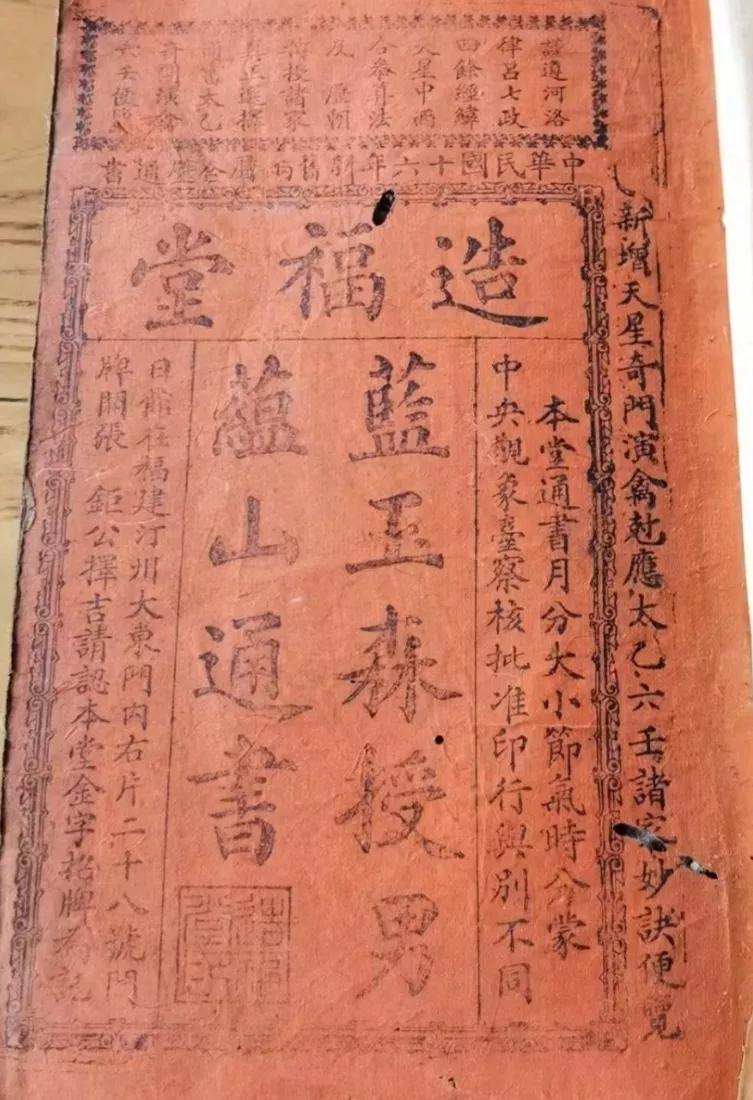 謹遵河洛
律呂七政
四餘經緯
天星中西
合參算法
及歷朝
諸家
真正選擇
太乙
奇門演禽
六壬便覽
中華民國十六年新舊 曆全 通書
新增天星奇門演禽尅應太乙六壬諸家妙訣便覽
造福堂
本堂通書月分大小節氣時分蒙
中央觀象臺察核批准印行與別不同
藍玉森授男
蘊山通書
日館在福建汀州大東門內右片二十八號門
牌開張 鉅公擇吉請認本堂金字招牌為記